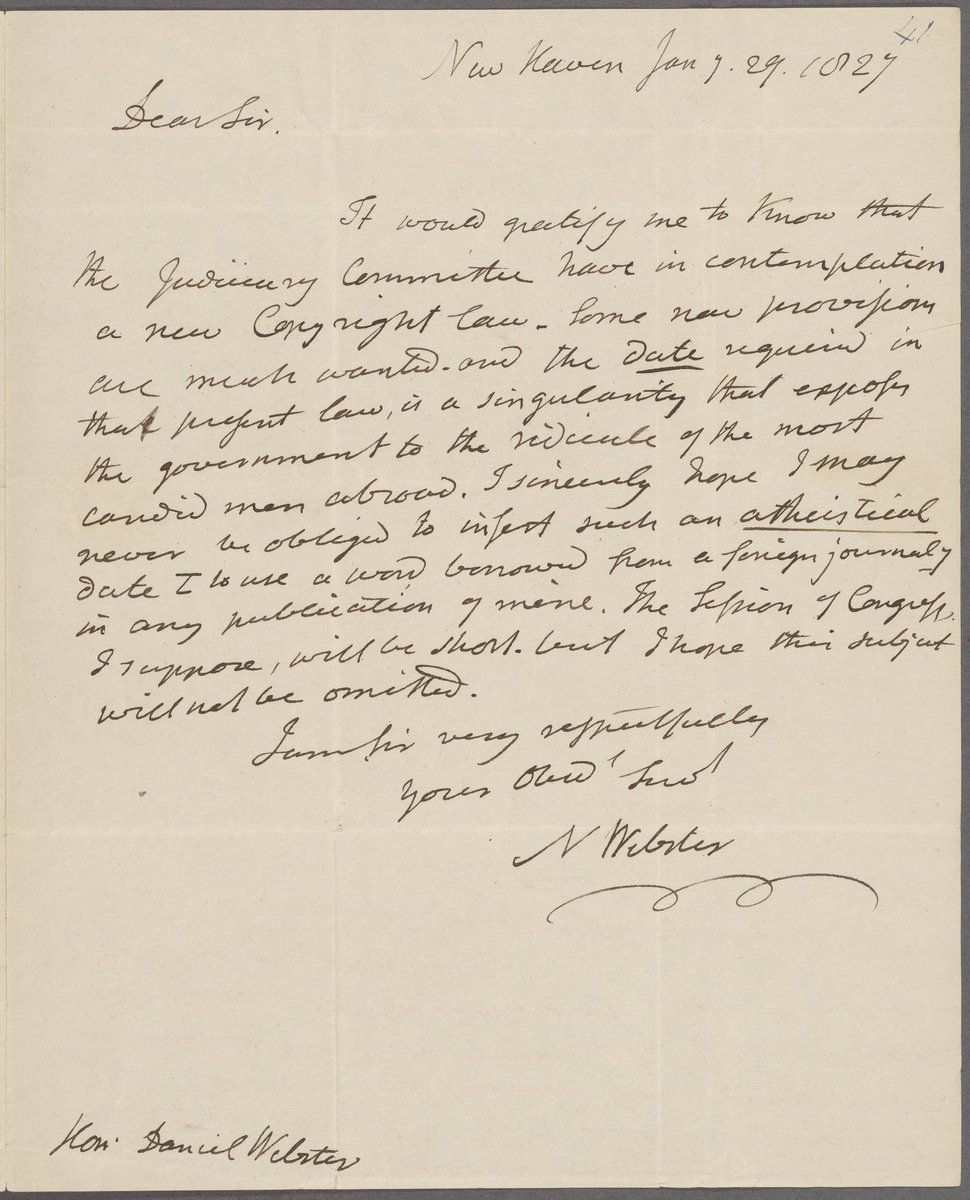 41
New Haven Jany. 29. 1827
Dear Sir.
It would gratify me to know that
the Judiciary Committee have in contemplation
a new Copyright law. Some new provisions
are much wanted - and the date required in
that present law, is a singularity that exposes
the government to the ridicule of the most
candid men abroad. I sincerely hope I may
never be obliged to insert such an atheistical
date I to use a word borrowed from a foreign journal
in any publication of mine. The Session of Congress,
I suppose, will be short - but I hope this subject
will not be omitted.
I am Sir very respectfully
your Obedt Servt
N Webster
Hon. Daniel Webster